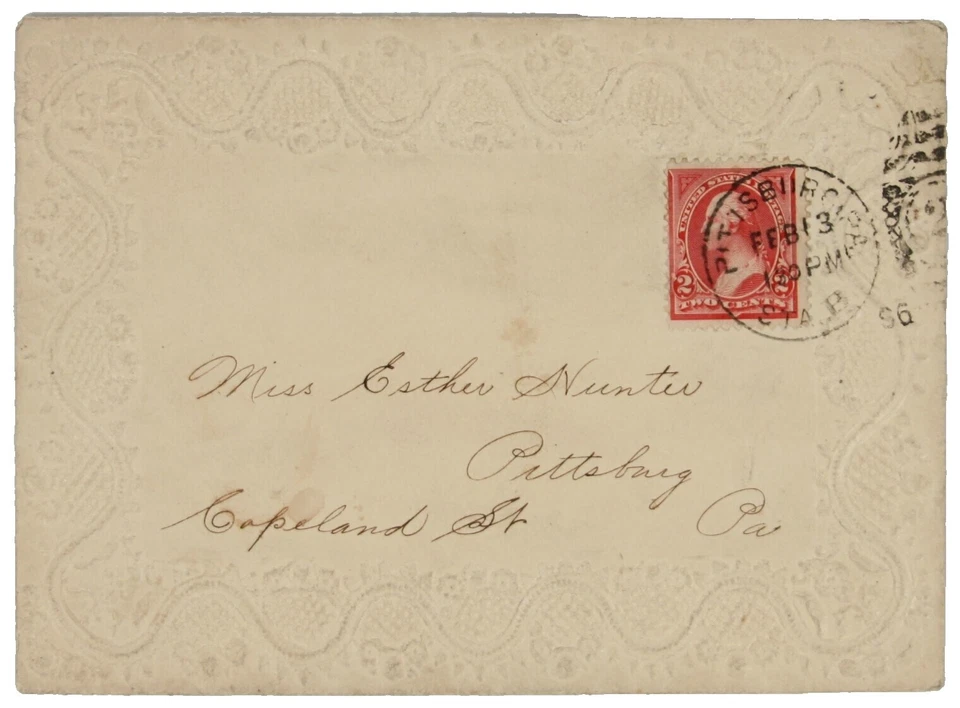 UNITED STATES POSTAGE
2 2
TWO CENTS
PITTSBURG, PA
FEB 13
PM
STA. B
96
Miss Esther Hunter
Pittsburg
Copeland St Pa